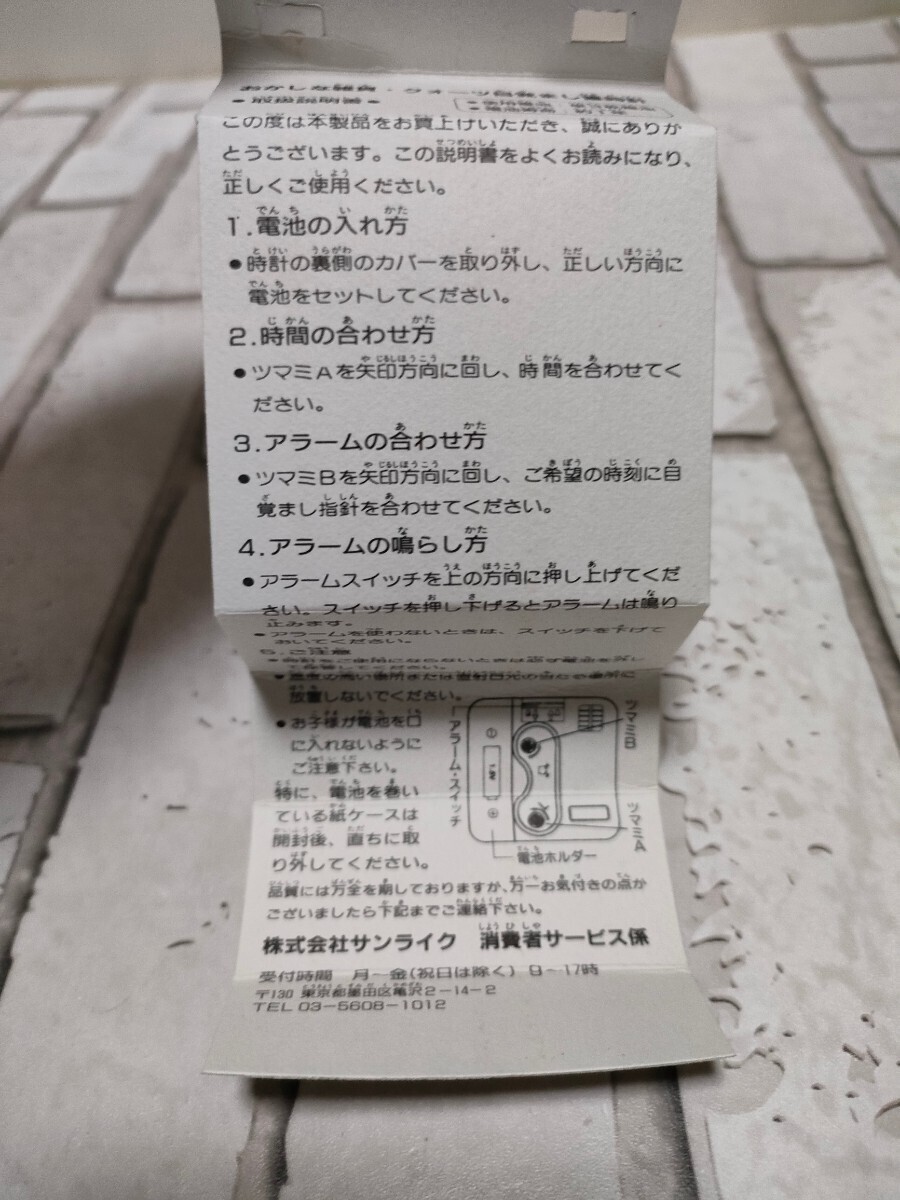 ●取扱説明書●
この度は本製品をお買上げいただき、誠にありが
とうございます。この説明書をよくお読みになり、
正しくご使用ください。
1.電池の入れ方
●時計の裏側のカバーを取り外し、正しい方向に
電池をセットしてください。
2.時間の合わせ方
●ツマミAを矢印方向に回し、時間を合わせてく
ださい。
3.アラームの合わせ方
●ツマミBを矢印方向に回し、ご希望の時刻に目
覚まし指針を合わせてください。
4.アラームの鳴らし方
●アラームスイッチを上の方向に押し上げてくだ
さい。スイッチを押し下げるとアラームは鳴り
止みます。
●アラームを使わないときは、スイッチを下げて
おいてください。
5.ご注意
●温度の高い場所または直射日光の当たる場所に
放置しないでください。
●お子様が電池を口
に入れないように
ご注意下さい。
特に、電池を巻い
ている紙ケースは
開封後、直ちに取
り外してください。
アラーム・スイッチ
ツマミB
ツマミA
電池ホルダー
品質には万全を期しておりますが、万一お気付きの点が
ございましたら下記までご連絡下さい。
株式会社サンライク 消費者サービス係
受付時間 月~金(祝日は除く) 9~17時
〒130 東京都墨田区亀沢2-14-2
TEL 03-5608-1012